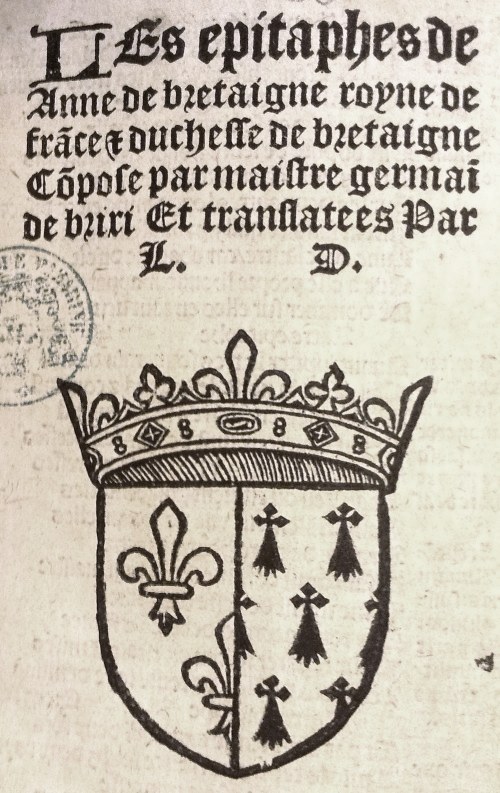 LEs epitaphes de
Anne de bretaigne royne de
frãce & duchesse de bretaigne
Cõpose par maistre germaĩ
de brixi Et translatees Par
L. D.